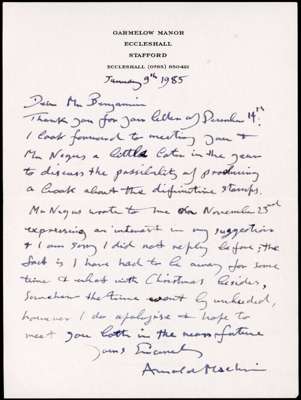 GARMELOW MANOR
ECCLESHALL
STAFFORD
ECCLESHALL (0785) 850421
January 9th 1985
Dear Mr Benjamin
Thank you for your letter of December 14th.
I look forward to meeting you &
Mr Negus a little later in the year
to discuss the possibility of producing
a book about the difinitive stamps.
Mr Negus wrote to me on November 23rd
expressing an interest in my suggestion
& I am sorry I did not reply before, the
fact is I have had to be away for some
time & what with Christmas besides,
somehow the time went by unheeded,
however I do apologise & hope to
meet you both in the near future
Yours Sincerely
Arnold Machin